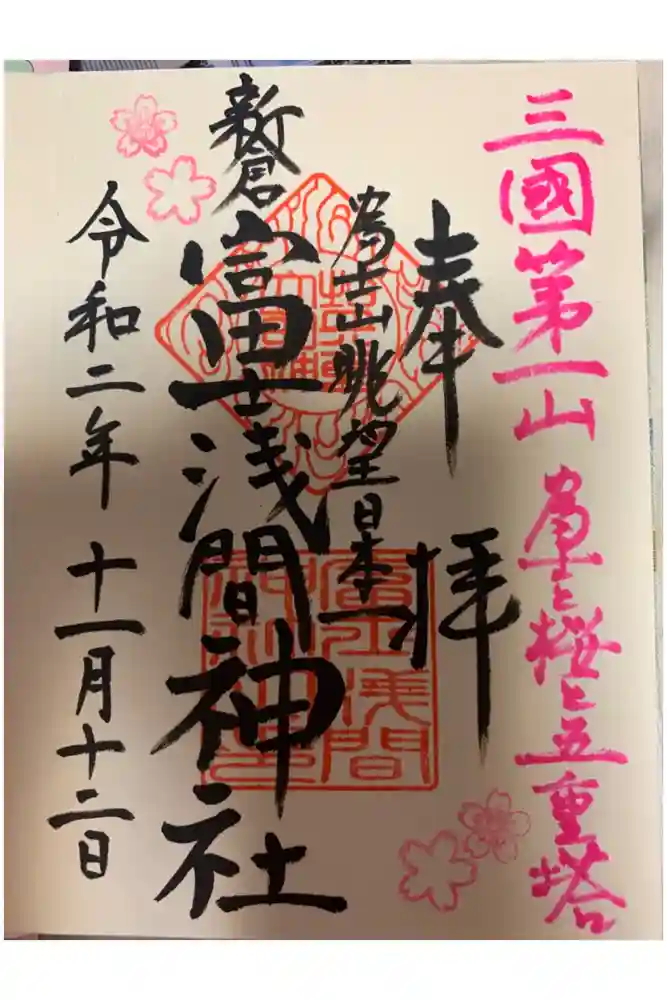 三國第一山 富士と桜と五重塔
奉拝
富士山眺望日本一
新倉富士浅間神社
令和二年十一月十二日
冨士浅間
神社之印